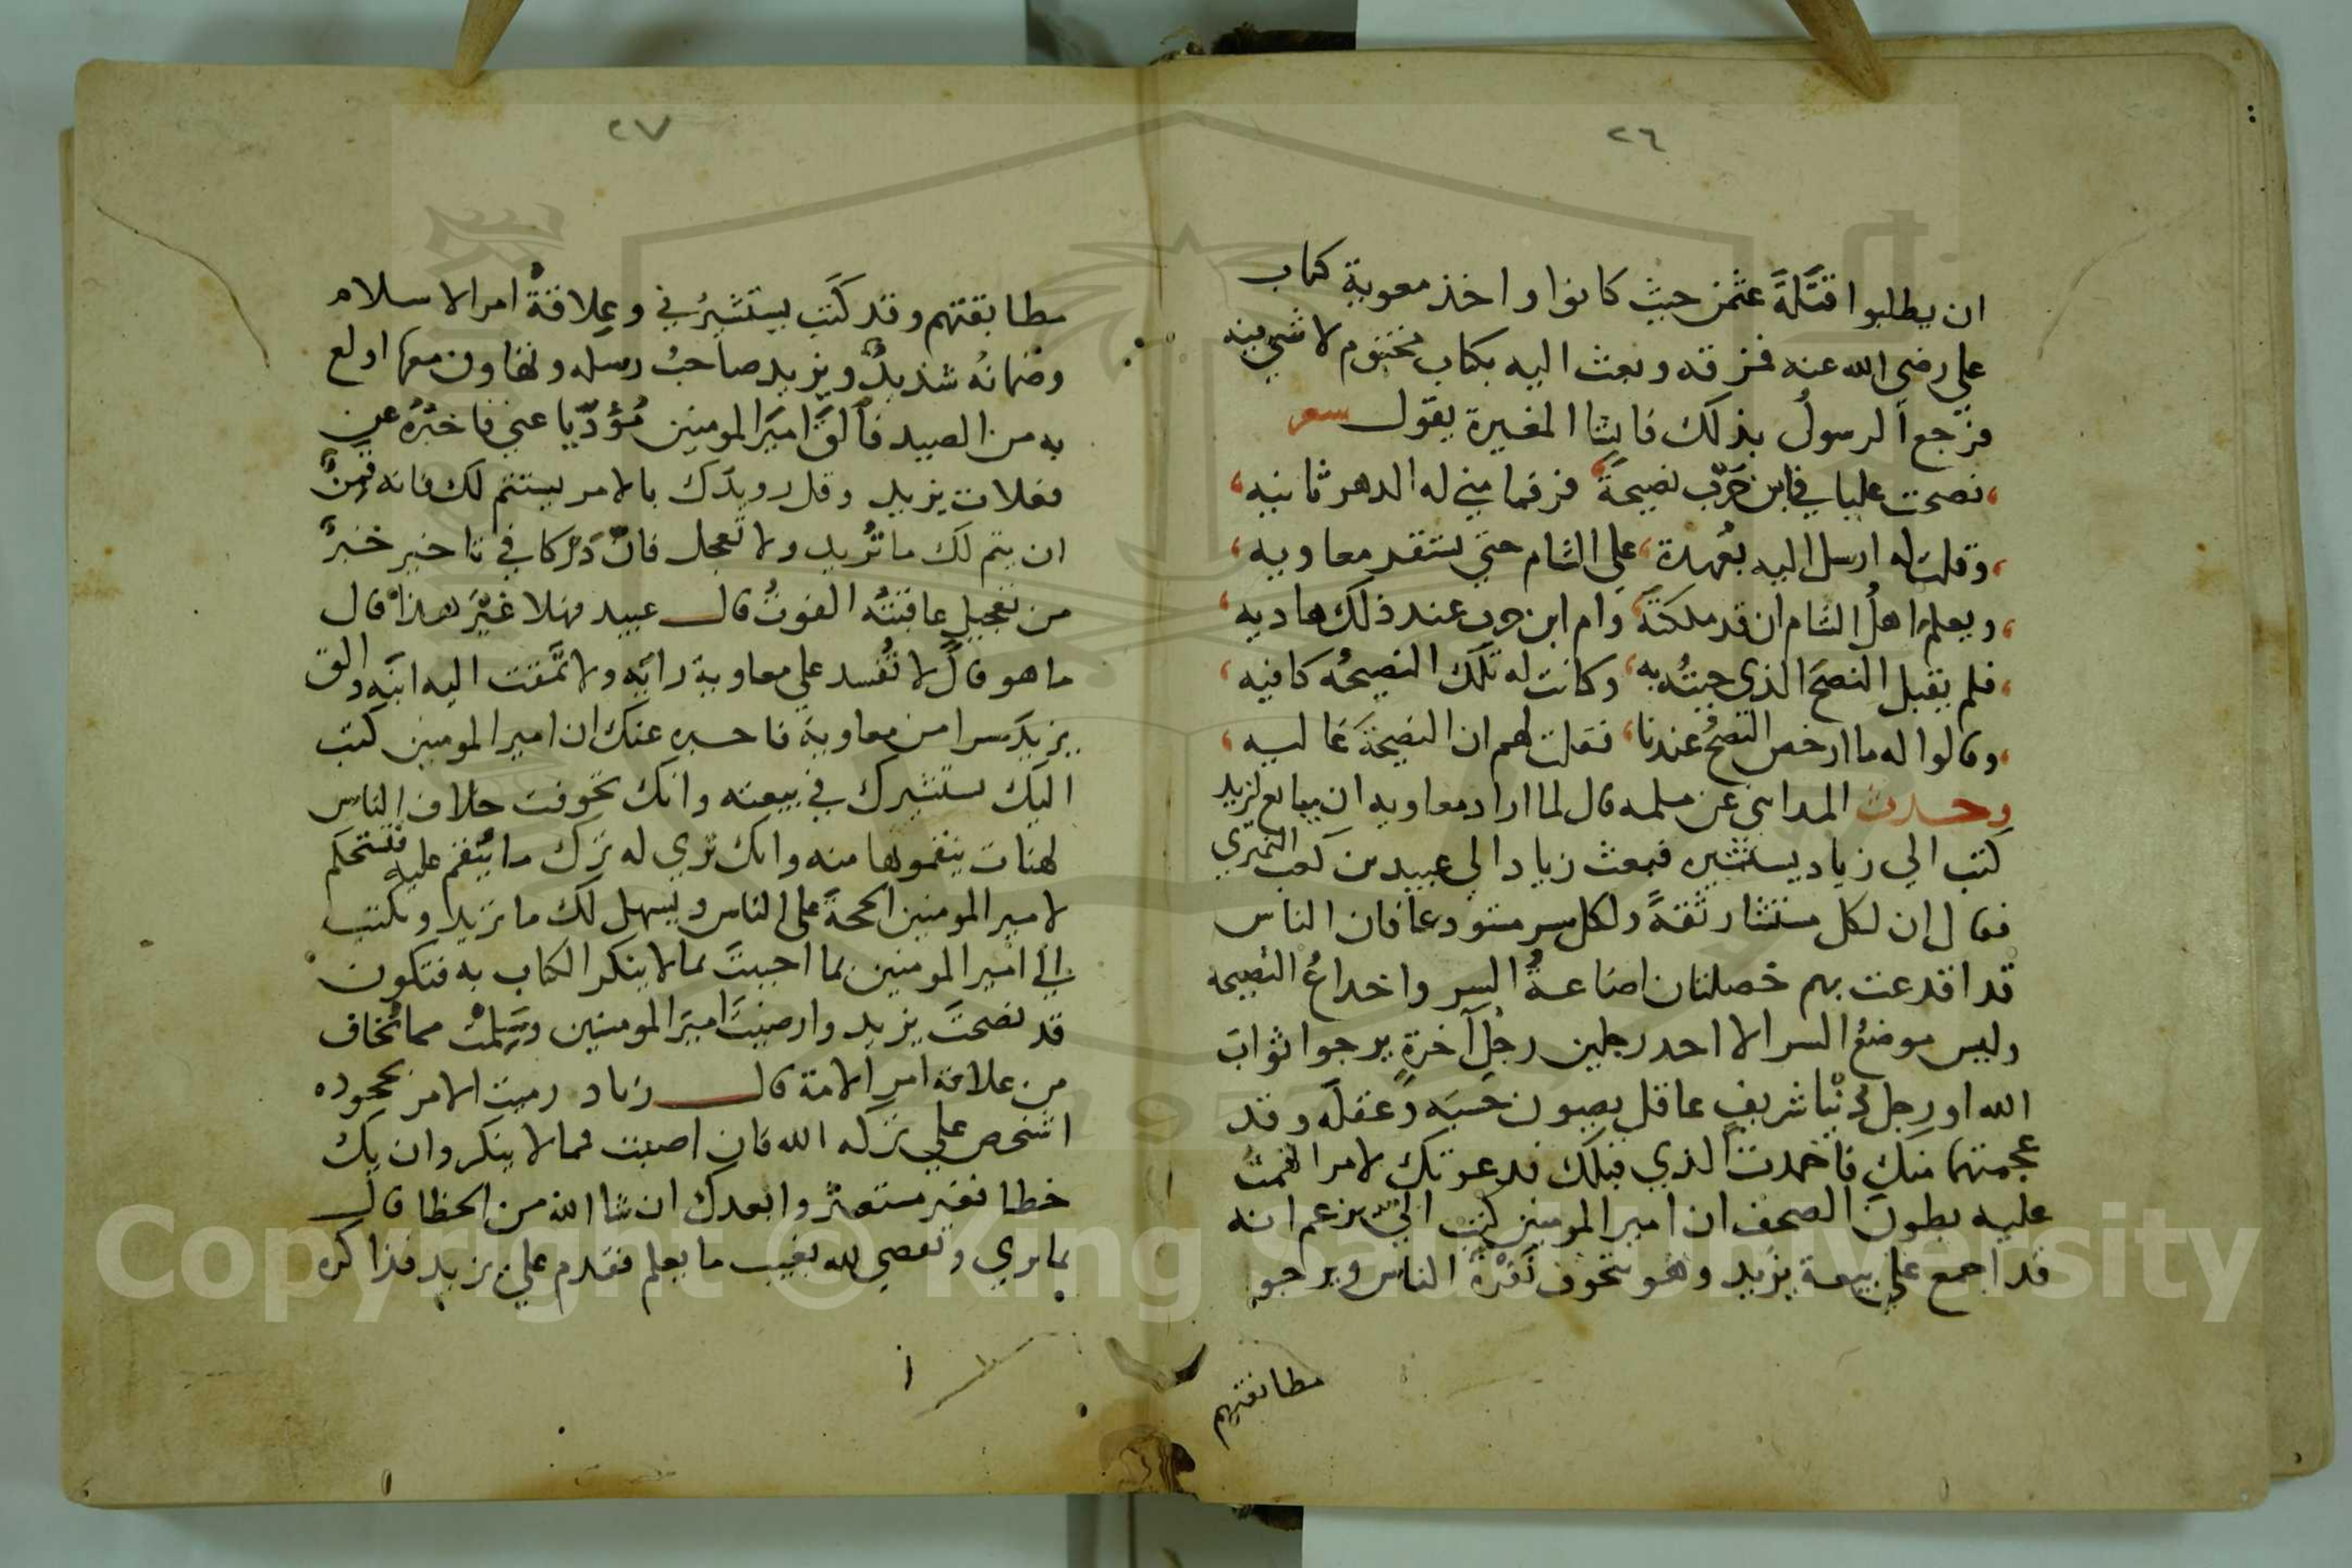 ٢٦
ان يطلبوا قتلة عثمن حيث كانوا واخذ معوية كتاب
علي رضي الله عنه فمزقه وبعث اليه بكتاب مختوم لا شي فيه
فرجع الرسول بذلك فانشا المغيرة يقول سعر
نصحت عليا في ابن حرب نصيحة فرد فما مني له الدهر ثانيه
وقلت له ارسل اليه بعهدة علي الشام حتي يستقر معاويه
ويعلم اهل الشام ان قد ملكته وام ابن حرب عند ذلك هاويه
فلم يقبل النصح الذي جيته به وكانت له تلك النصيحه كافيه
وقالوا له ما ارخص النصح عندنا فقلت لهم ان النصيحة غاليه
وحدث المدايني عن مسلمه قال لما اراد معاويه ان يبايع ليزيد
كتب الي زياد يستشيره فبعث زياد الي عبيد بن كعب النميري
فقال ان لكل مستشار ثقة ولكل سر مستودعا فان الناس
قد اقدعت بهم خصلتان اضاعة السر واخداع النصيحه
وليس موضع السر الا احد رجلين رجل آخرة يرجوا ثواب
الله او رجل دنيا شريف عاقل يصون حسبه وعقله وقد
عجمتهما منك فاحمدت الذي قبلك قد عوتك لامر اتهمت
عليه بطون الصحف ان امير المومنين كتب الي يزعم انه
قد اجمع علي بيعة يزيد وهو يتخوف نفرة الناس ويرجو
مطابقتهم
٢٧
مطابقتهم وقد كتب يستشيرني وعلاقة امر الاسلام
وضمانه شديد ويزيد صاحب رسله وتهاون معما اولع
به من الصيد فالق امير المومنين مؤديا عني فاخبره عن
فعلات يزيد وقل رويدك بالامر يستتم لك فانه قمن
ان يتم لك ما تريد ولا تعجل فان دركا في تاخير خير
من تعجيل عاقبته الفوت قال عبيد فهلا غير هذا قال
ما هو قال لا تفسد علي معاوية رايه ولا تمقت اليه ابنه والق
يزيد سرا من معاوية فاخبره عنك ان امير المومنين كتب
اليك يستشيرك في بيعته وانك تخوفت خلاف الناس
لهنات ينقمونها منه وانك تري له ترك ما ينقم عليه فتستحكم
لامير المومنين الحجة علي الناس ويسهل لك ما تريد وتكتب
الي امير المومنين بما احببت بما لا ينكر الكتاب به فتكون
قد نصحت يزيد وارضيت امير المومنين وسلمت مما تخاف
من علاقة امر الامة قال زياد رميت الامر بحجره
اشخص علي بركة الله فان اصبت فما لا ينكر وان يك
خطا فغير مستغش وابعدك ان شا الله من الخطا قال
بما تري ويقضي لله بغيب ما يعلم فقدم علي يزيد فذاكره
Copyright © King Saud University